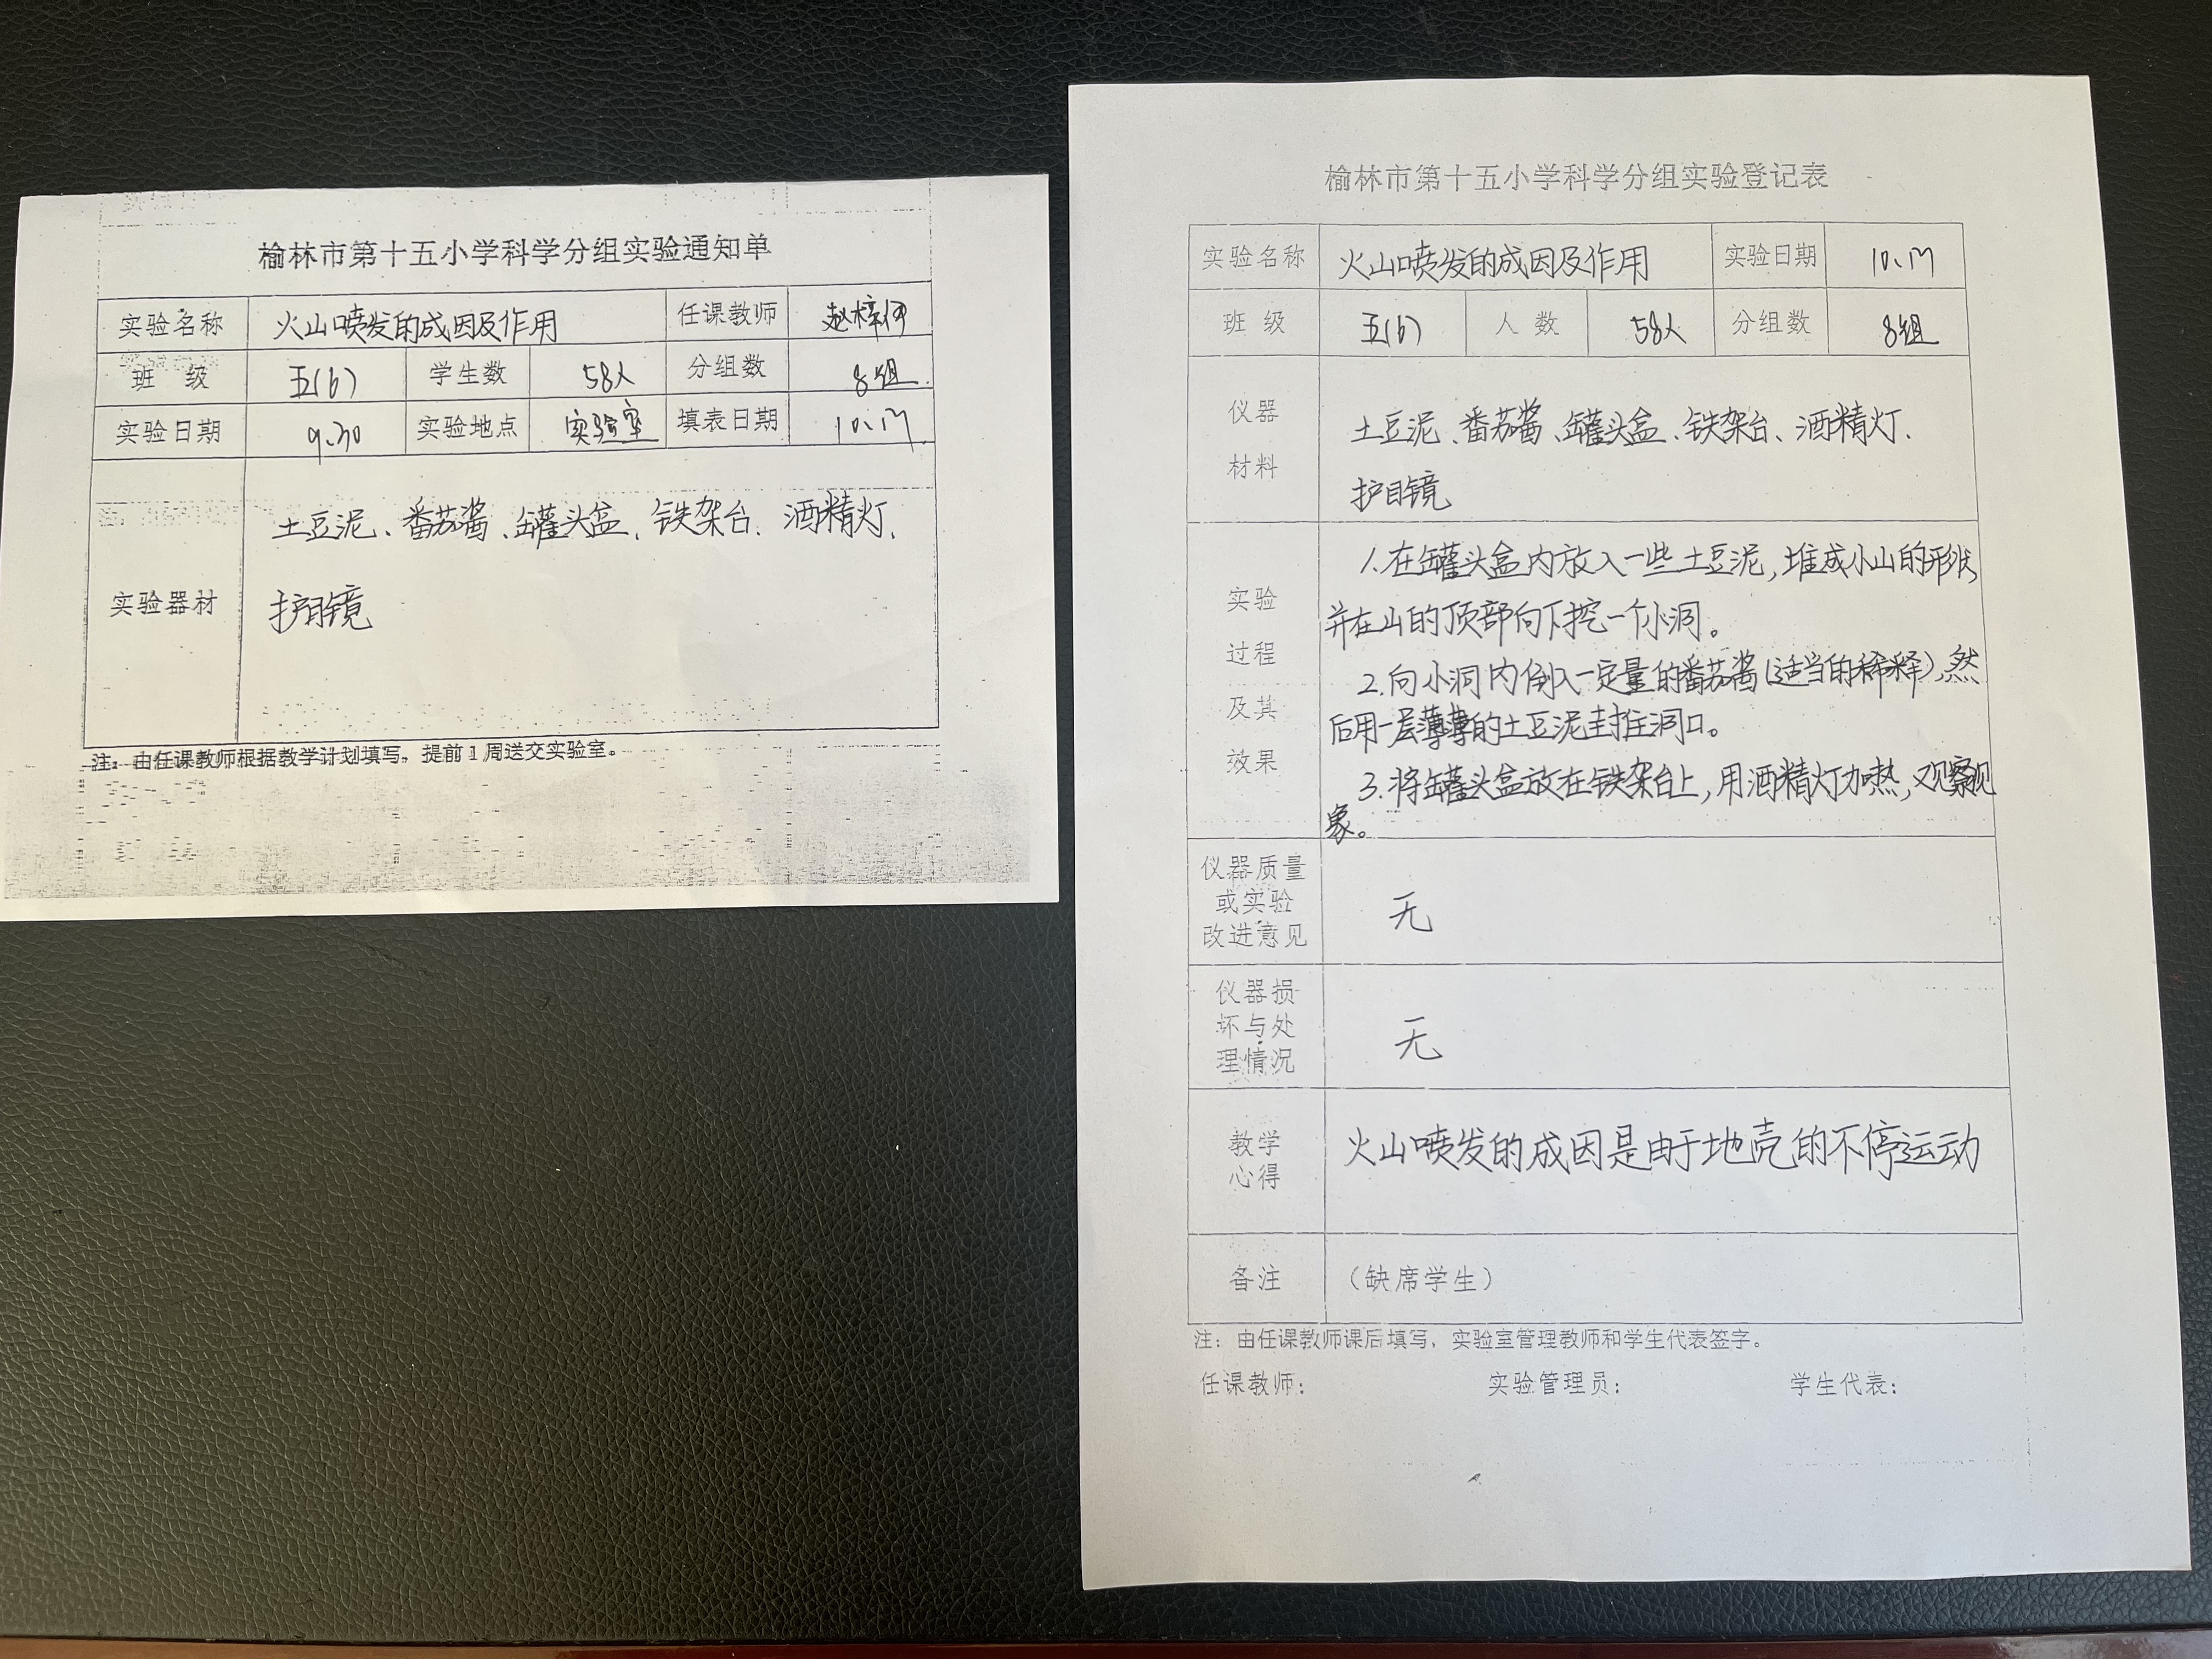 榆林市第十五小学科学分组实验通知单
实验名称 火山喷发的成因及作用 任课教师
班 级 五(6) 学生数 58人 分组数 8组
实验日期 9.30 实验地点 实验室 填表日期 10.17
实验器材
土豆泥、番茄酱、罐头盒、铁架台、酒精灯、
护目镜
注:由任课教师根据教学计划填写,提前1周送交实验室。
榆林市第十五小学科学分组实验登记表
实验名称 火山喷发的成因及作用 实验日期 10.17
班 级 五(6) 人 数 58人 分组数 8组
仪器
材料
土豆泥、番茄酱、罐头盒、铁架台、酒精灯、
护目镜
实验
过程
及其
效果
1.在罐头盒内放入一些土豆泥,堆成小山的形状,
并在山的顶部向下挖一个小洞。
2.向小洞内倒入一定量的番茄酱(适当的稀释),然
后用一层薄薄的土豆泥封住洞口。
3.将罐头盒放在铁架台上,用酒精灯加热,观察现
象。
仪器质量
或实验
改进意见
无
仪器损
坏与处
理情况
无
教学
心得
火山喷发的成因是由于地壳的不停运动
备注 (缺席学生)
注:由任课教师课后填写,实验室管理教师和学生代表签字。
任课教师: 实验管理员: 学生代表: